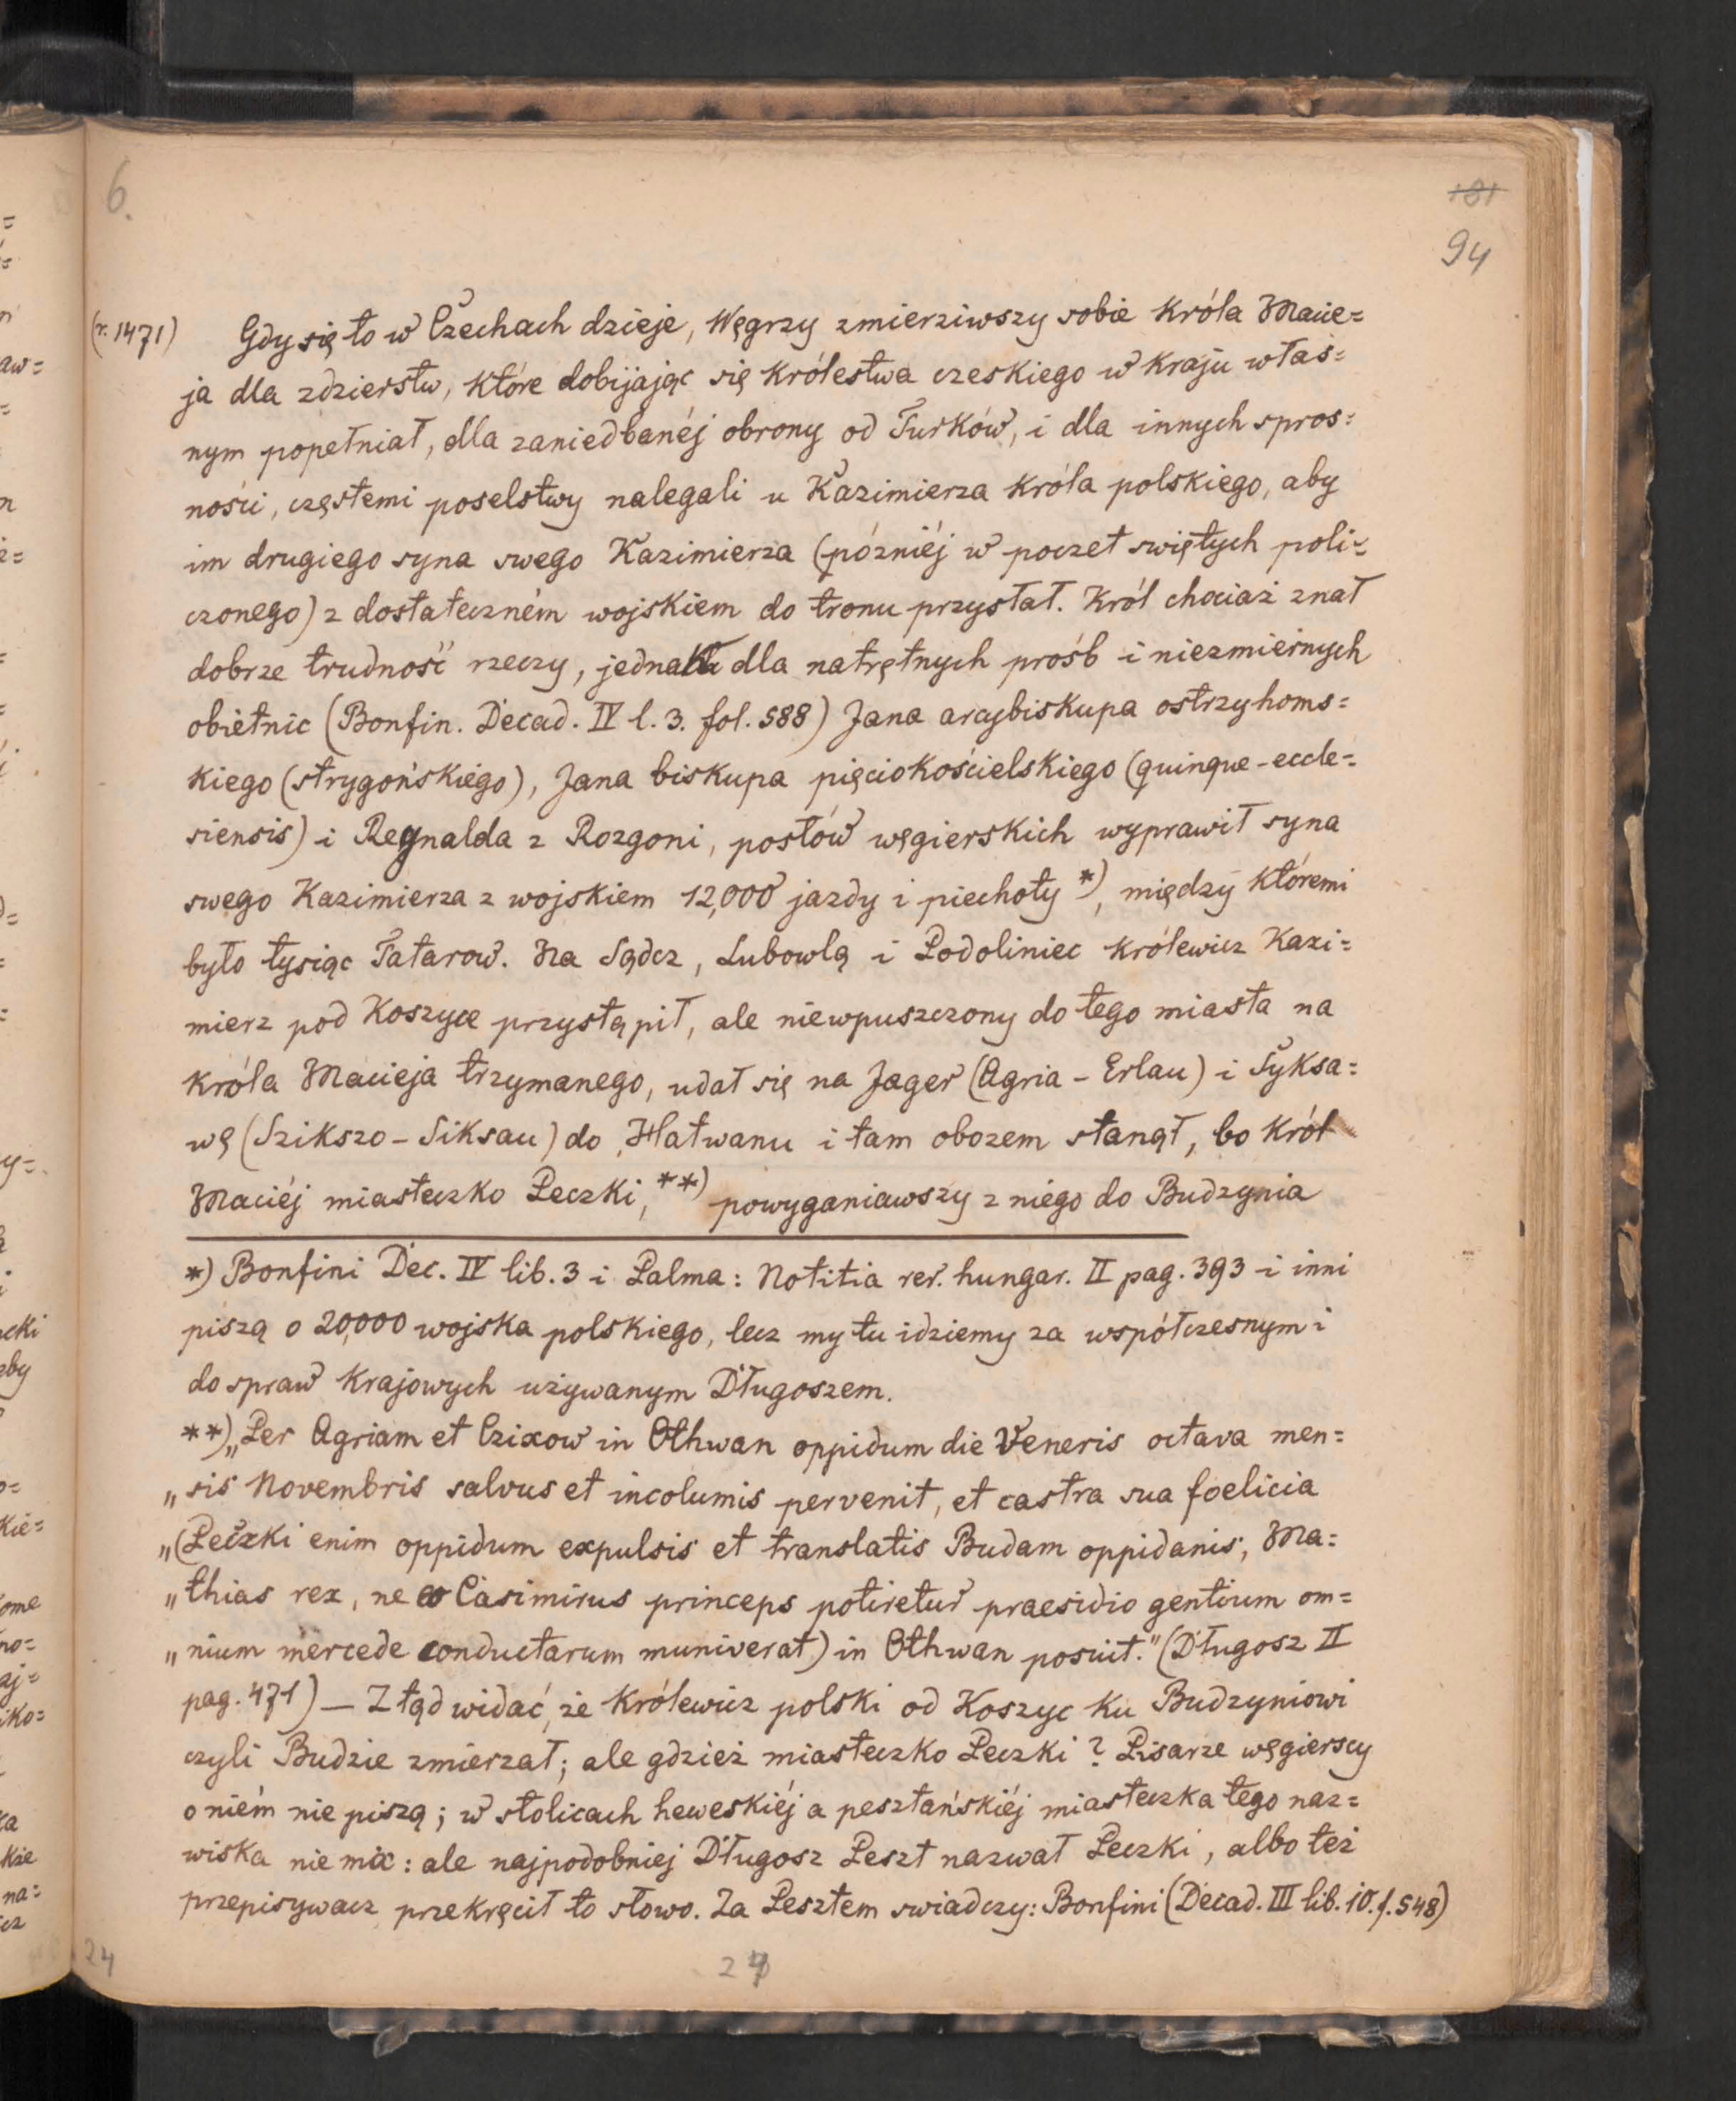 6.
181
94
(r. 1471) Gdy się to w Czechach dzieje, Węgrzy zmierziwszy sobie króla Macie=
ja dla zdzierstw, które dobijając się królestwa czeskiego w kraju włas=
nym popełniał, dla zaniedbanéj obrony od Turków, i dla innych spros=
ności, częstemi poselstwy nalegali u Kazimierza króla polskiego, aby
im drugiego syna swego Kazimierza (późniéj w poczet swiętych poli=
czonego) z dostateczném wojskiem do tronu przysłał. Król chociaż znał
dobrze trudność rzeczy, jednak dla natrętnych prośb i niezmiernych
obietnic (Bonfin. Decad. IV l. 3. fol. 588) Jana arcybiskupa ostrzyhoms=
kiego (strygońskiego), Jana biskupa pięciokościelskiego (quinque-eccle=
siensis) i Regnalda z Rozgoni, posłów węgierskich wyprawił syna
swego Kazimierza z wojskiem 12,000 jazdy i piechoty *), między któremi
było tysiąc Tatarow. Na Sącz, Lubowlą i Podoliniec królewicz Kazi=
mierz pod Koszyce przystąpił, ale niewpuszczony do tego miasta na
króla Macieja trzymanego, udał się na Jager (Agria - Erlau) i Syksa=
wę (Szikszo - Siksau) do Hatwanu i tam obozem stanął, bo król
Maciéj miasteczko Peczki, **) powyganiawszy z niego do Budzynia
*) Bonfini Dec. IV lib. 3 i Palma: Notitia rer. hungar. II pag. 393 i inni
piszą o 20,000 wojska polskiego, lecz my tu idziemy za współczesnym i
do spraw krajowych używanym Długoszem.
**) „Per Agriam et Czixow in Othwan oppidum die Veneris octava men=
„sis Novembris salvus et incolumis pervenit, et castra sua foelicia
„(Peczki enim oppidum expulsis et translatis Budam oppidanis, Ma=
„thias rex, ne eo Casimirus princeps potiretur praesidio gentium om=
„nium mercede conductarum muniverat) in Othwan posuit." (Długosz II
pag. 471) — Ztąd widać, że królewicz polski od Koszyc ku Budzyniowi
czyli Budzie zmierzał; ale gdzież miasteczko Peczki? Pisarze węgierscy
o niém nie piszą; w stolicach heweskiéj a pesztańskiéj miasteczka tego naz=
wiska nie ma: ale najpodobniej Długosz Peszt nazwał Peczki, albo też
przepisywacz przekręcił to słowo. Za Pesztem swiadczy: Bonfini (Decad. III lib. 10. f. 548)
24